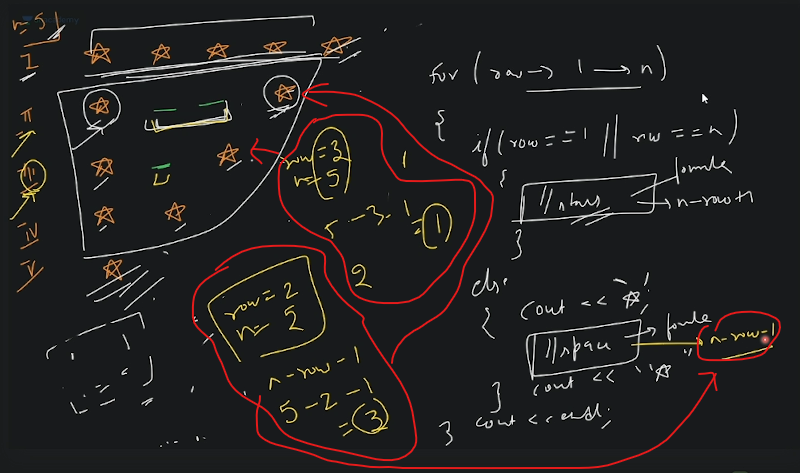 n=5
I
II
III
IV
V
row=3
n=5
1
5-3-1
=1
2
row=2
n=5
n-row-1
5-2-1
=3
for (row→ 1 → n)
{
if(row==1 || row==n)
{
//stars
formula
→n-row+1
}
else
{
cout << "☆";
//space
→ formula
n-row-1
cout << "☆"
}
cout << endl;
}